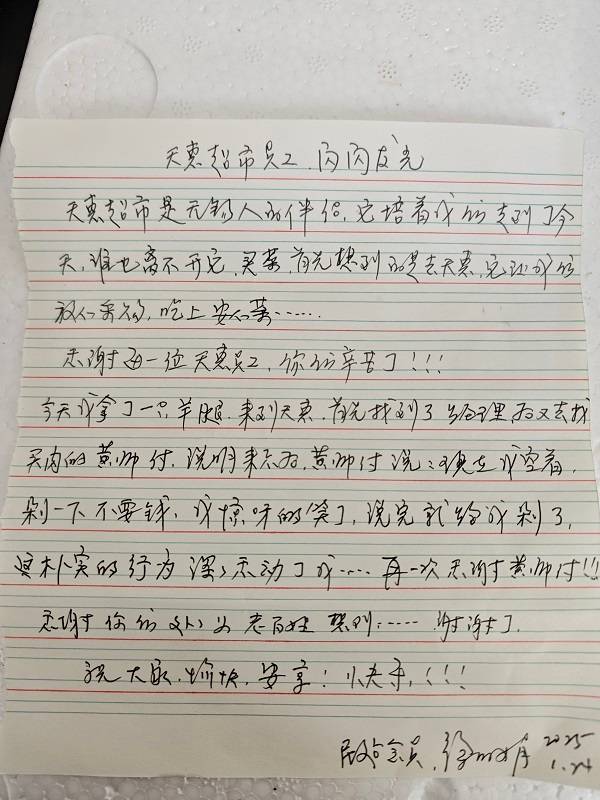 天惠超市员工、闪闪发光
天惠超市是无锡人的伴侣,它培着我们走到了今
天,谁也离不开它,买菜,首先想到的是去天惠,它让我们
放心采购,吃上安心菜……
感谢每一位天惠员工,你们辛苦了!!!
今天我拿了一只羊腿,来到天惠,首先找到了经理后又去找
买肉的黄师付,说明来意后,黄师付说:现在我空着,
剁一下不要钱,我惊呀的笑了,说完就给我剁了,
这朴实的行为深深感动了我……再一次感谢黄师付!!!
感谢你们处处为老百姓想到……谢谢了.
祝大家,愉快,安享!小夫年,!!!
会员,徐 2025
1.24